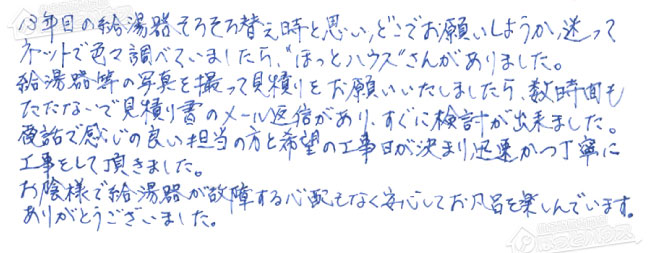 13年目の給湯器そろそろ替え時と思い、どこでお願いしようか迷って
ネットで色々調べていましたら、"ほっとハウス"さんがありました。
給湯器等の写真を撮って見積りをお願いいたしましたら、数時間も
たたないで見積り書のメール返信があり、すぐに検討が出来ました。
電話で感じの良い担当の方と希望の工事日が決まり迅速かつ丁寧に
工事をして頂きました。
お陰様で給湯器が故障する心配もなく安心してお風呂を楽しんでいます。
ありがとうございました。